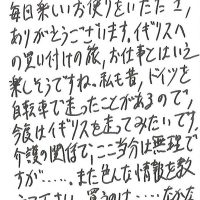 毎日楽しいお便りをいただき、
ありがとうございます。イギリスへ
の買い付けの旅、お仕事とはいえ
楽しそうですね。私も昔、ドイツを
自転車で走ったことがあるので、
今度はイギリスを走ってみたいです。
介護の関係で、ここ当分は無理で
すが……また色んな情報を教
えて下さい。買うのは……なかな